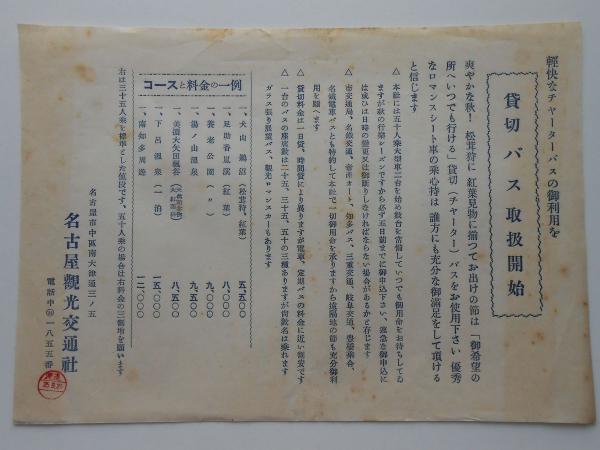 輕快なチャーターバスの御利用を
貸切バス取扱開始
爽やかな秋! 松茸狩に 紅葉見物に揃つてお出けの節は「御希望の
所へいつでも行ける」貸切（チャーター）バスをお使用下さい 優秀
なロマンスシート車の乘心持は 誰方にも充分な御滿足をして頂ける
と信じます
△ 本社には五十人乘大型車二台を始め数台を常備していつでも御用命をお待ちしてゐ
ますが秋の行樂シーズンですから必ず五日前までに御申込下さい、遠急な御申込に
は或ひは日時の變更又は御斷りしなければならない場合があるかと存じます
△ 市交通局、名鉄交通、帝産オート、知多バス、三重交通、岐阜交通、豊橋乘合、
名鐵電車バスとも特約して本社で一切御用命を承りますから遠隔地の節も充分御利
用を願へます
△ 貸切料金は一日貸、時間貸により異りますが電車、定期バスの料金に近い割安です
△ 一台のバスの座席数は二十五、三十五、五十の三種ありますが何数名は乘れます
ガラス張り展望バス、觀光ロマンスカーもあります
コースと料金の一例
一、犬山 鵜沼（松茸狩、紅葉） 五、五〇〇
一、足助香嵐溪（紅葉） 八、〇〇〇
一、養老公園（〃） 九、〇〇〇
一、湯ノ山温泉 九、五〇〇
一、美濃大矢田楓谷 八、五〇〇
一、下呂温泉（一泊） 一五、〇〇〇
一、南知多周遊 一二、〇〇〇
右は三十五人乘を標準とした値段です、五十人乘の場合は右料金の三割増を願います
名古屋市中區南大津通三ノ五
名古屋觀光交通社
電話中 一八五五番